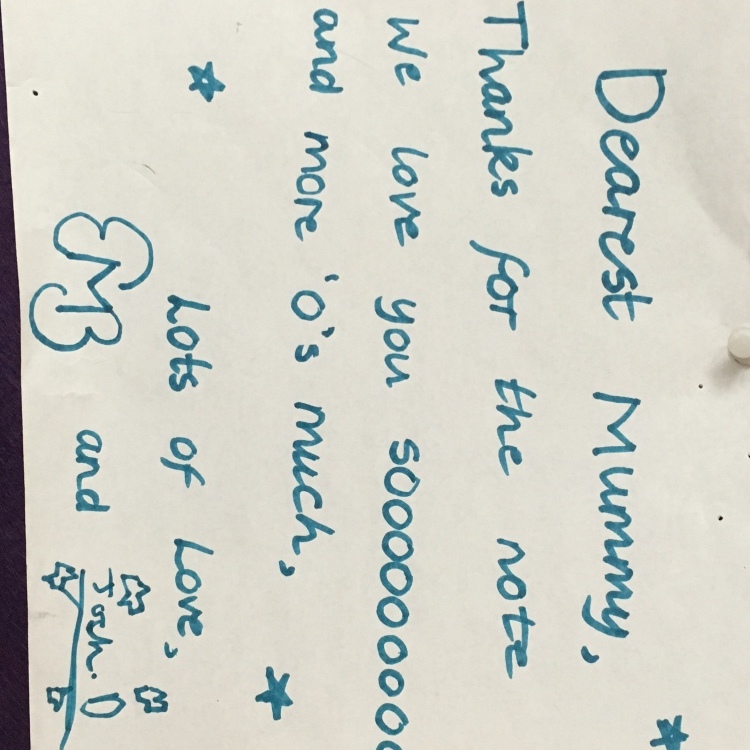 Dearest Mummy,
Thanks for the note
We love you soooooooooo
and more 'o's much,
Lots of Love,
EMB and